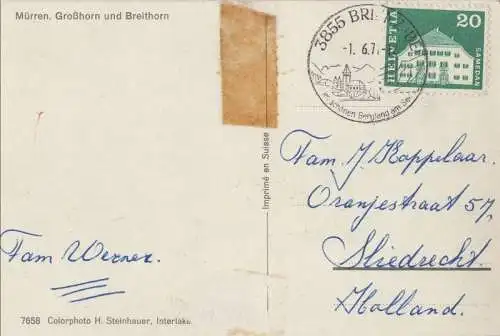 Mürren. Großhorn und Breithorn
3855 BRI
-1. 6.7
schönen Bergland am See
HELVETIA
20
SAMEDAN
Imprimé en Suisse
Fam. J Koppelaar.
Oranjestraat 57,
Sliedrecht.
Holland.
Fam Werner.
7658 Colorphoto H. Steinhauer, Interlake